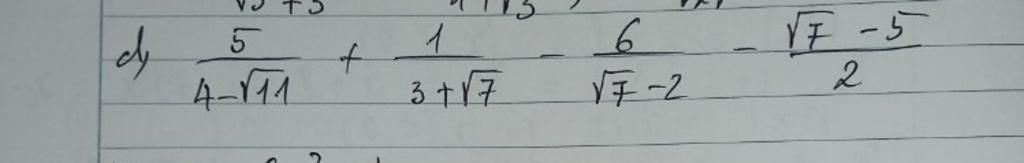 √5 + 3
d) 5/(4-√11) + 1/(3+√7) - 6/(√7-2) - (√7-5)/2